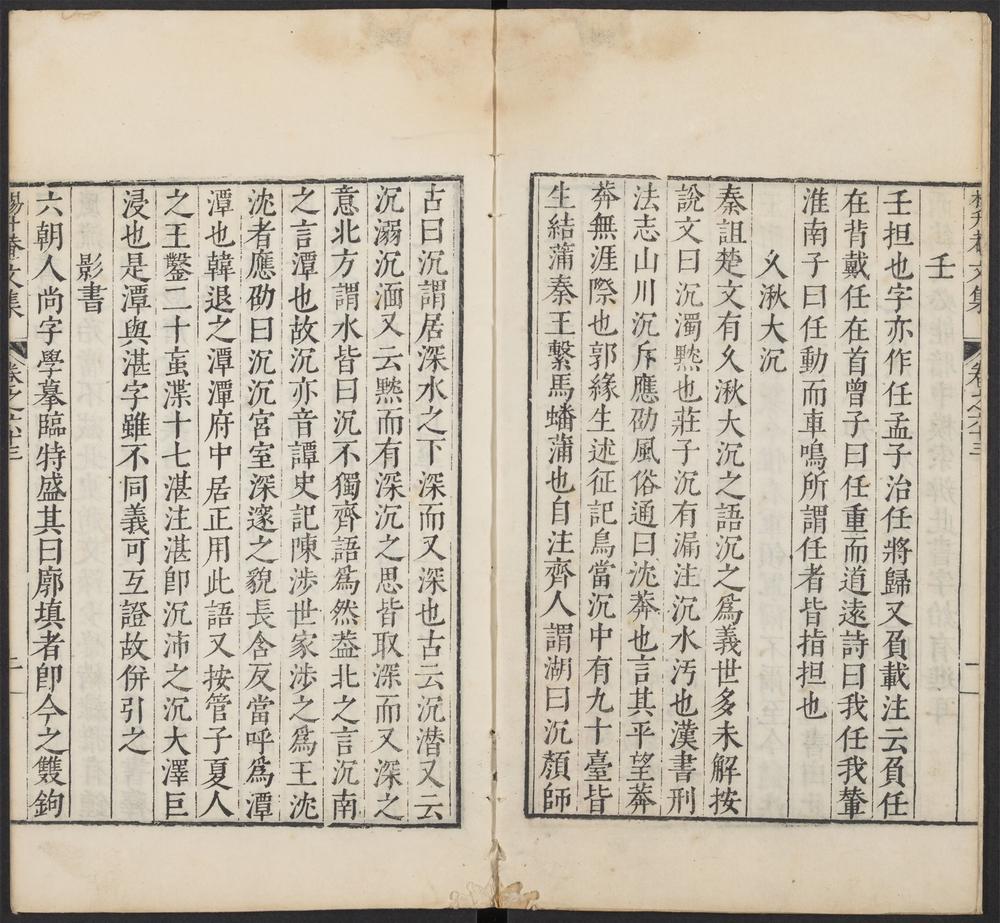 壬
壬担也字亦作任孟子治任將歸又負載注云負任
在背戴任在首曾子曰任重而道遠詩曰我任我輦
淮南子曰任動而車鳴所謂任者皆指担也
久湫大沉
秦詛楚文有久湫大沉之語沉之爲義世多未解按
說文曰沉濁黕也莊子沉有漏注沉水汚也漢書刑
法志山川沉斥應劭風俗通曰沈莽也言其平望莽
莽無涯際也郭緣生述征記鳥當沉中有九十臺皆
生結蒲秦王繫馬蟠蒲也自注齊人謂湖曰沉顏師
古曰沉謂居深水之下深而又深也古云沉潜又云
沉溺沉湎又云黕而有深沉之思皆取深而又深之
意北方謂水皆曰沉不獨齊語爲然葢北之言沉南
之言潭也故沉亦音譚史記陳渉世家渉之爲王沈
沈者應劭曰沉沉宮室深邃之貌長含反當呼爲潭
潭也韓退之潭潭府中居正用此語又按管子夏人
之王鑿二十䖟渫十七湛注湛卽沉沛之沉大澤巨
浸也是潭與湛字雖不同義可互證故併引之
影書
六朝人尚字學摹臨特盛其曰廓填者卽今之雙鉤
楊升菴文集
卷之六十三